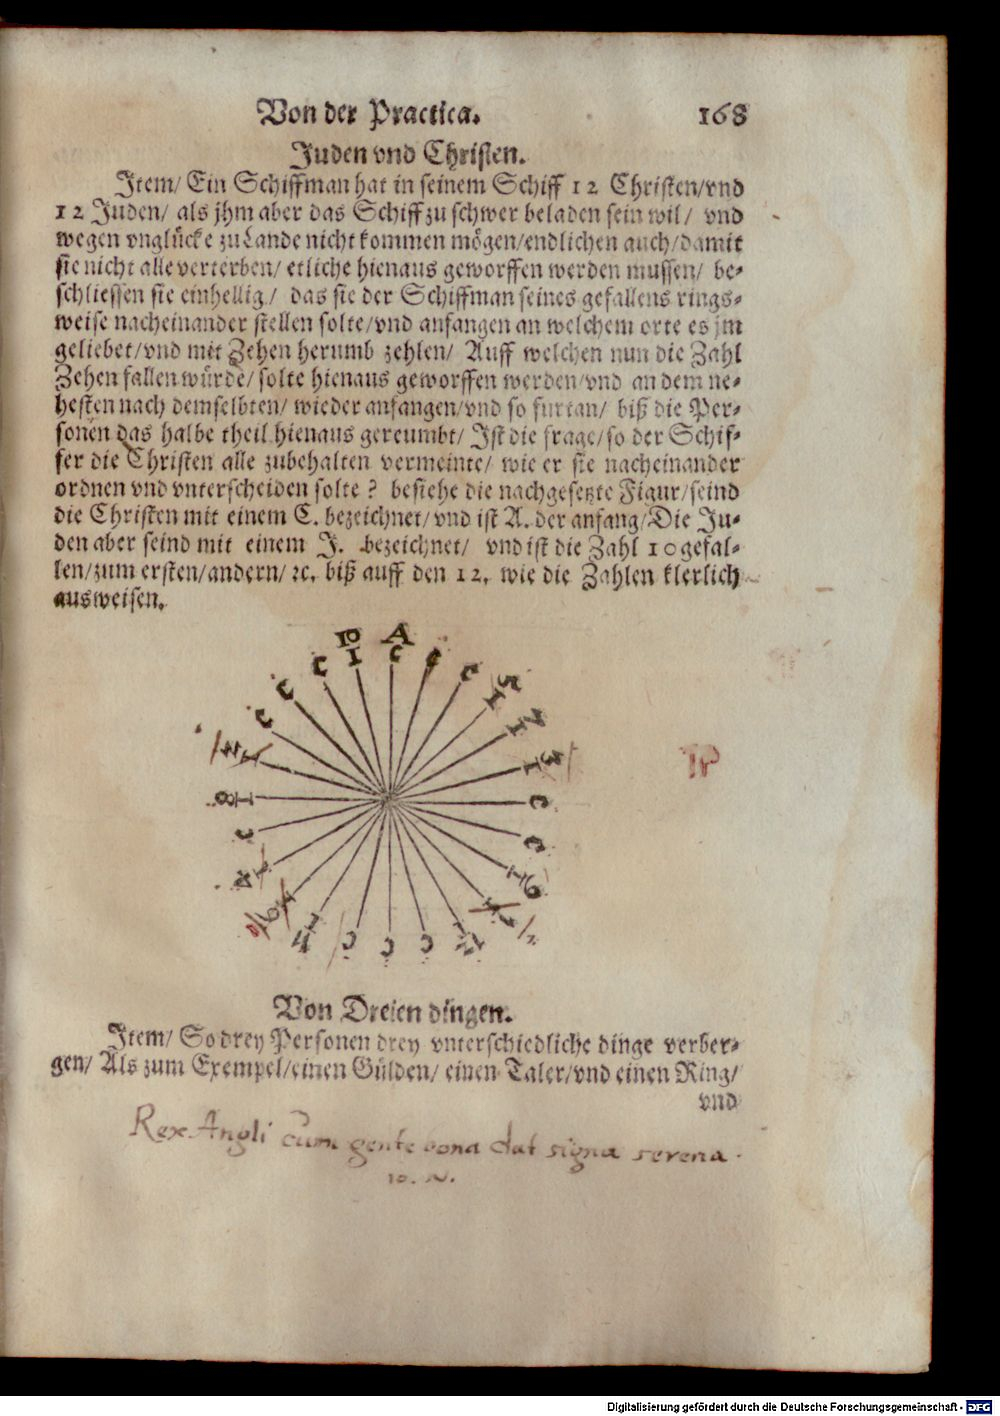 Von der Practica. 168
Juden vnd Christen.
Item/ Ein Schiffman hat in seinem Schiff 12 Christen/vnd
12 Juden/ als jhm aber das Schiff zu schwer beladen sein wil/ vnd
wegen vnglücke zu Lande nicht kommen mögen/endlichen auch/damit
sie nicht alle verterben/ etliche hienaus geworffen werden mussen/ be-
schliessen sie einhellig/ das sie der Schiffman seines gefallens rings-
weise nacheinander stellen solte/vnd anfangen an welchem orte es jm
geliebet/vnd mit Zehen herumb zehlen/ Auff welchen nun die Zahl
Zehen fallen würde/ solte hienaus geworffen werden/vnd an dem ne-
hesten nach demselbten/ wieder anfangen/vnd so furtan/ biß die Per-
sonen das halbe theil hienaus gereumbt/ Ist die frage/so der Schif-
fer die Christen alle zubehalten vermeinte/ wie er sie nacheinander
ordnen vnd vnterscheiden solte? besiehe die nachgesetzte Figur/seind
die Christen mit einem C. bezeichnet/vnd ist A. der anfang/Die Ju-
den aber seind mit einem J. bezeichnet/ vnd ist die Zahl 10 gefal-
len/zum ersten/andern/ ꝛc. biß auff den 12. wie die Zahlen klerlich
ausweisen.
10 A
I C C C
5 I
7 I
3 I
C
C
9 I
12 I
C C C
11 I
6 I
I
C
8 I
I
C C C
Von Dreien dingen.
Item/ So drey Personen drey vnterschiedliche dinge verber-
gen/ Als zum Exempel/einen Gülden/ einen Taler/vnd einen Ring/
vnd
Rex Angli cum gente bona dat signa serena.
10. N.
Digitalisierung gefördert durch die Deutsche Forschungsgemeinschaft - DFG